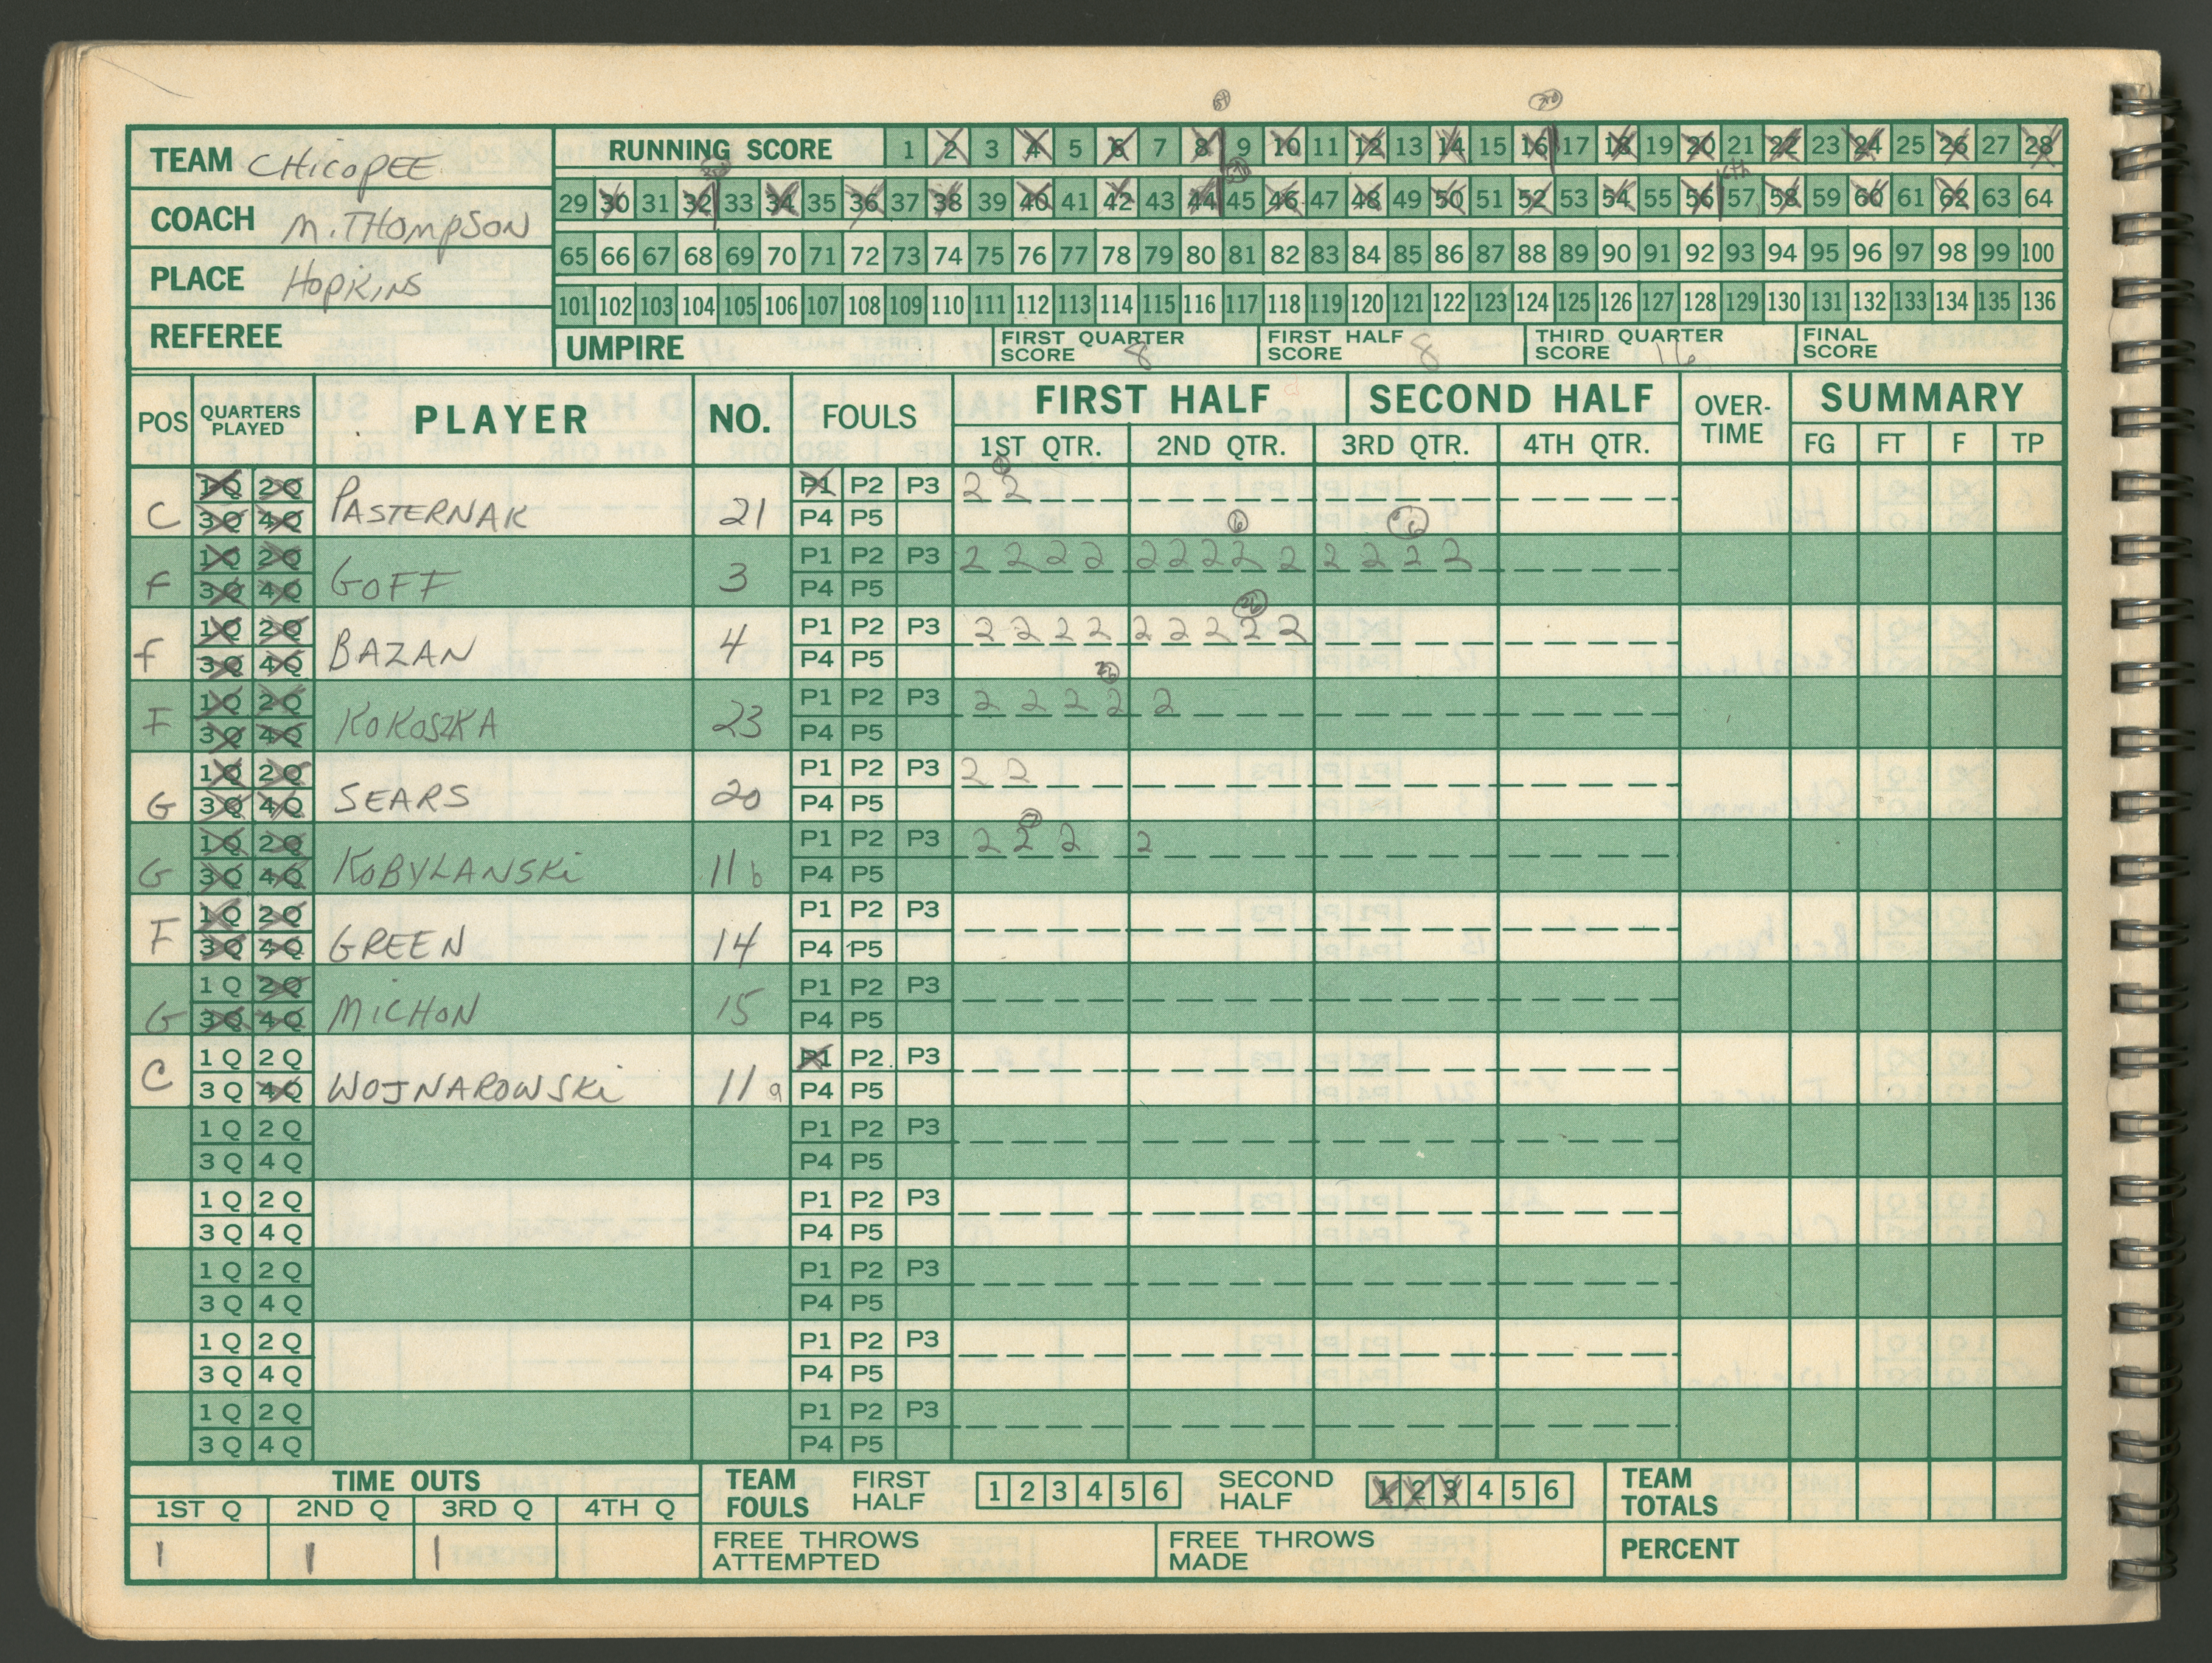 TEAM CHICOPEE
COACH M. THOMPSON
PLACE HOPKINS
REFEREE
RUNNING SCORE 1 2 3 4 5 6 7 8 9 10 11 12 13 14 15 16 17 18 19 20 21 22 23 24 25 26 27 28
29 30 31 32 33 34 35 36 37 38 39 40 41 42 43 44 45 46 47 48 49 50 51 52 53 54 55 56 57 58 59 60 61 62 63 64
65 66 67 68 69 70 71 72 73 74 75 76 77 78 79 80 81 82 83 84 85 86 87 88 89 90 91 92 93 94 95 96 97 98 99 100
101 102 103 104 105 106 107 108 109 110 111 112 113 114 115 116 117 118 119 120 121 122 123 124 125 126 127 128 129 130 131 132 133 134 135 136
UMPIRE FIRST QUARTER SCORE 8 FIRST HALF SCORE 8 THIRD QUARTER SCORE 16 FINAL SCORE
POS QUARTERS PLAYED PLAYER NO. FOULS FIRST HALF SECOND HALF OVER-TIME SUMMARY
1ST QTR. 2ND QTR. 3RD QTR. 4TH QTR. FG FT F TP
C 1Q 2Q 3Q 4Q PASTERNAK 21 P1 P2 P3 P4 P5 2 2
F 1Q 2Q 3Q 4Q GOFF 3 P1 P2 P3 P4 P5 2 2 2 2 2 2 2 2 2 2 2 2 2
F 1Q 2Q 3Q 4Q BAZAN 4 P1 P2 P3 P4 P5 2 2 2 2 2 2 2 2 2
F 1Q 2Q 3Q 4Q KOKOSZKA 23 P1 P2 P3 P4 P5 2 2 2 2 2
G 1Q 2Q 3Q 4Q SEARS 20 P1 P2 P3 P4 P5 2 2
G 1Q 2Q 3Q 4Q KOBYLANSKi 11 b P1 P2 P3 P4 P5 2 2 2 2
F 1Q 2Q 3Q 4Q GREEN 14 P1 P2 P3 P4 P5
G 1Q 2Q 3Q 4Q MICHON 15 P1 P2 P3 P4 P5
C 1Q 2Q 3Q 4Q WOJNAROWSKi 11 a P1 P2 P3 P4 P5
1Q 2Q 3Q 4Q P1 P2 P3 P4 P5
1Q 2Q 3Q 4Q P1 P2 P3 P4 P5
1Q 2Q 3Q 4Q P1 P2 P3 P4 P5
1Q 2Q 3Q 4Q P1 P2 P3 P4 P5
1Q 2Q 3Q 4Q P1 P2 P3 P4 P5
TIME OUTS
1ST Q 2ND Q 3RD Q 4TH Q
1 1 1
TEAM FOULS FIRST HALF 1 2 3 4 5 6 SECOND HALF 1 2 3 4 5 6
FREE THROWS ATTEMPTED FREE THROWS MADE
TEAM TOTALS
PERCENT